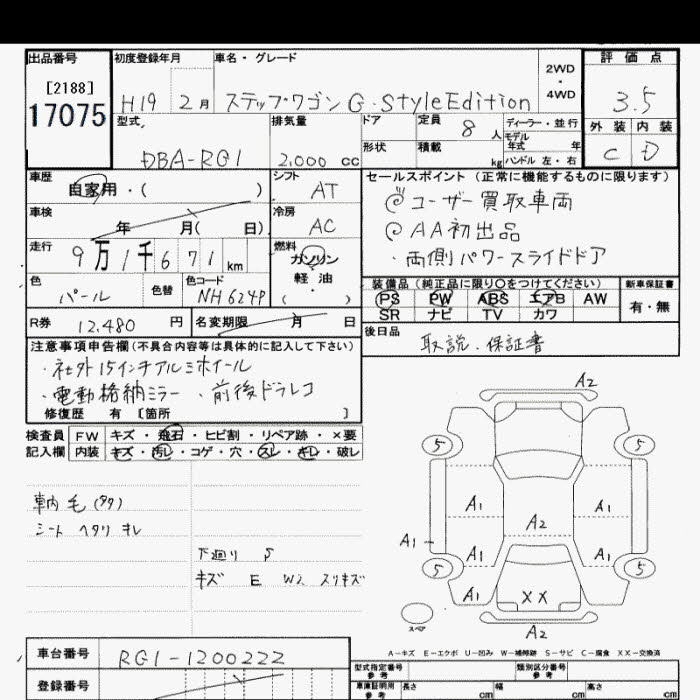 出品番号 初度登録年月 車名・グレード 2WD・4WD 評価点
[2188]
17075 H19 2月 ステップワゴン G・StyleEdition 3.5
型式 排気量 ドア 定員 8人 ディーラー・並行 外装 内装
モデル年式 年
DBA-RG1 2,000 cc 形状 積載 kg ハンドル 左・右 C D
車歴 自家用・( ) シフト AT セールスポイント (正常に機能するものに限ります)
車検 年 月( 日) 冷房 AC ユーザー買取車両
AA初出品
走行 9万1千671km 燃料 ガソリン ・両側パワースライドドア
軽・油
( )
色 パール 色替 色コード NH624P
装備品 (純正品に限り○をつけてください) 新車保証書
PS PW ABS エアB AW 有・無
SR ナビ TV カワ
R券 12,480 円 名変期限 月 日
後日品 取説・保証書
注意事項申告欄(不具合内容等は具体的に記入して下さい)
・社外15インチアルミホイール
・電動格納ミラー ・前後ドラレコ
修復歴 有 [箇所 ]
検査員 FW キズ・飛石・ヒビ割・リペア跡・×要
記入欄 内装 キズ・汚レ・コゲ・穴・スレ・キレ・破レ
A2
5 5
車内 毛(多タ)
シート ヘタリ キレ
A1 A1
A2
A1 A1 A1
下廻り S
キズ E W2 スリキズ
5 5
A1 XX
スペア
A2
A-キズ E-エクボ U-凹み W-補修跡 S-サビ C-腐食 XX-交換済
車台番号 RG1-1200222
型式指定番号 参考 類別区分番号 参考
登録番号
車庫証明用 参考 長さ cm 幅 cm 高さ cm